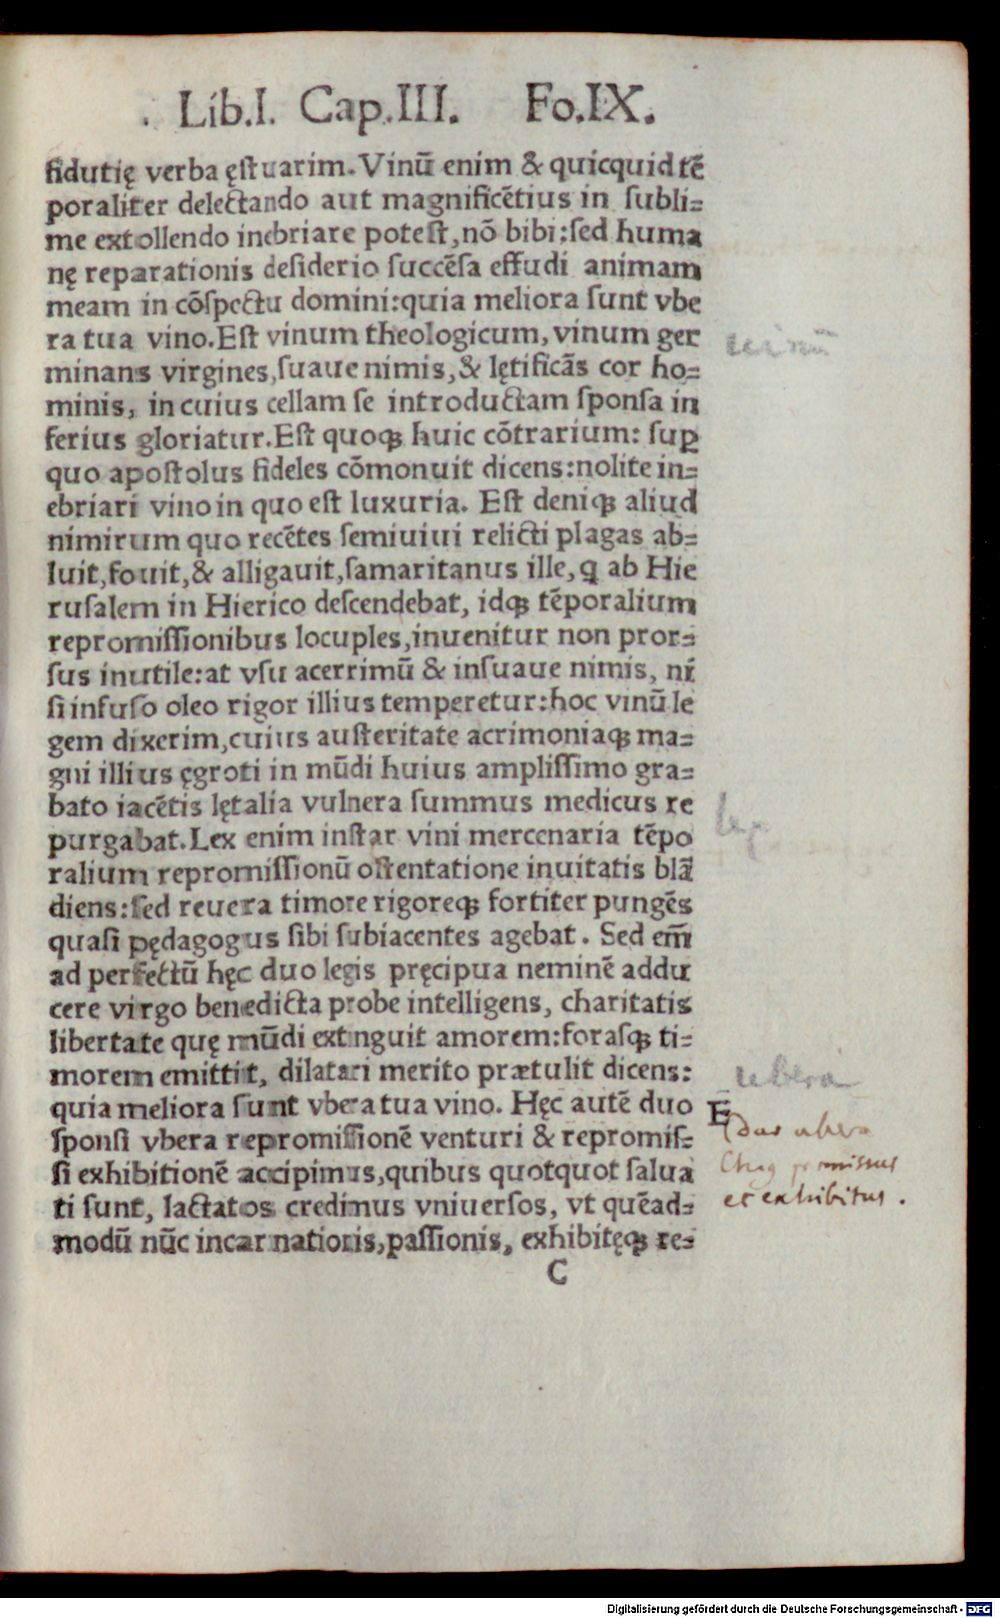 . Lib.I. Cap.III. Fo.IX.
fidutię verba ęſtuarim. Vinū enim & quicquid tē
poraliter delectando aut magnificētius in ſubli⸗
me extollendo inebriare poteſt, nō bibi: ſed huma
nę reparationis deſiderio ſuccēſa effudi animam
meam in cōſpectu domini: quia meliora ſunt vbe
ra tua vino. Eſt vinum theologicum, vinum ger
minans virgines, ſuaue nimis, & lętificās cor ho⸗
minis, in cuius cellam ſe introductam ſponſa in
ferius gloriatur. Eſt quoqꝫ huic cōtrarium: ſuꝑ
quo apoſtolus fideles cōmonuit dicens: nolite in⸗
ebriari vino in quo eſt luxuria. Eſt deniqꝫ aliud
nimirum quo recētes ſemiuiui relicti plagas ab⸗
luit, fouit, & alligauit, ſamaritanus ille, q̄ ab Hie
ruſalem in Hierico deſcendebat, idqꝫ tēporalium
repromiſſionibus locuples, inuenitur non pror⸗
ſus inutile: at vſu acerrimū & inſuaue nimis, ni
ſi infuſo oleo rigor illius temperetur: hoc vinū le
gem dixerim, cuius auſteritate acrimoniaqꝫ ma⸗
gni illius ęgroti in mūdi huius ampliſſimo gra⸗
bato iacētis lętalia vulnera ſummus medicus re
purgabat. Lex enim inſtar vini mercenaria tēpo
ralium repromiſſionū oſtentatione inuitatis blā
diens: ſed reuera timore rigoreqꝫ fortiter pungēs
quaſi pędagogus ſibi ſubiacentes agebat. Sed em̄
ad perfectū hęc duo legis pręcipua neminē addu
cere virgo benedicta probe intelligens, charitatis
libertate quę mūdi extinguit amorem: foraſqꝫ ti⸗
morem emittit, dilatari merito prætulit dicens:
quia meliora ſunt vbera tua vino. Hęc autē duo
ſponſi vbera repromiſſionē venturi & repromiſ⸗
ſi exhibitionē accipimus, quibus quotquot ſalua
ti ſunt, lactatos credimus vniuerſos, vt quēad⸗
modū nūc incarnationis, paſſionis, exhibitęqꝫ re⸗
C
uinū
lex
ubera
E
duo ubera
promissus
et exhibitus.
Digitalisierung gefördert durch die Deutsche Forschungsgemeinschaft - DFG